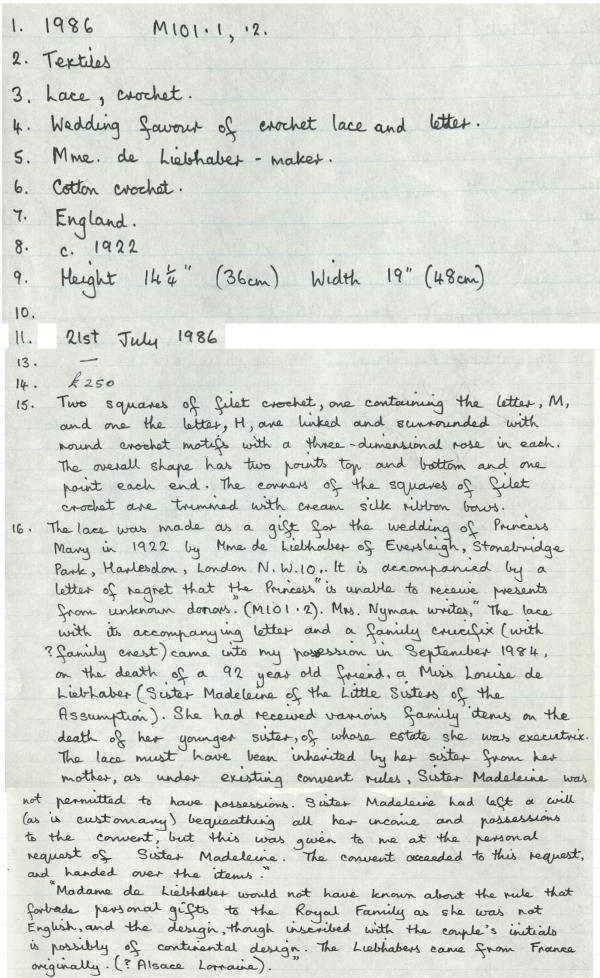 1. 1986 M101.1, .2.
2. Textiles
3. Lace, crochet.
4. Wedding favour of crochet lace and letter.
5. Mme. de Liebhaber - maker.
6. Cotton crochet.
7. England.
8. c. 1922
9. Height 14¼" (36cm) Width 19" (48cm)
10.
11. 21st July 1986
13. —
14. £250
15. Two squares of filet crochet, one containing the letter, M,
and one the letter, H, are linked and surrounded with
round crochet motifs with a three-dimensional rose in each.
The overall shape has two points top and bottom and one
point each end. The corners of the squares of filet
crochet are trimmed with cream silk ribbon bows.
16. The lace was made as a gift for the wedding of Princess
Mary in 1922 by Mme de Liebhaber of Eversleigh, Stonebridge
Park, Harlesdon, London N.W.10,. It is accompanied by a
letter of regret that the Princess "is unable to receive presents
from unknown donors." (M101.2). Mrs. Nyman writes, "The lace
with its accompanying letter and a family crucifix (with
? family crest) came into my possession in September 1984,
on the death of a 92 year old friend, a Miss Louise de
Liebhaber (Sister Madeleine of the Little Sisters of the
Assumption). She had received various family items on the
death of her younger sister, of whose estate she was executrix.
The lace must have been inherited by her sister from her
mother, as under existing convent rules, Sister Madeleine was
not permitted to have possessions. Sister Madeleine had left a will
(as is customary) bequeathing all her income and possessions
to the convent, but this was given to me at the personal
request of Sister Madeleine. The convent acceeded to this request,
and handed over the items."
"Madame de Liebhaber would not have known about the rule that
forbade personal gifts to the Royal Family as she was not
English, and the design, though inscribed with the couple's initials
is possibly of continental design. The Liebhabers came from France
originally. (? Alsace Lorraine)."